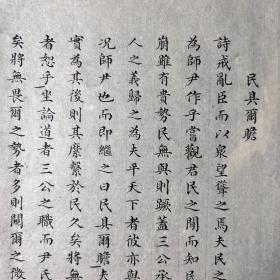 民具爾瞻
詩戒亂臣而以衆望聳之焉夫民之
為師尹作乎嘗觀君民之間而知民
崩雖有貴勢民無與則蹶蓋三公承
人之義歸之為夫平天下者彼亦與
况師尹也而即繼之曰民具爾瞻夫
實為其後則其縻繫於民久矣將無
者恕乎坐論道者三公之職而尹氏
矣將無畏爾之勢者多則闚爾之微